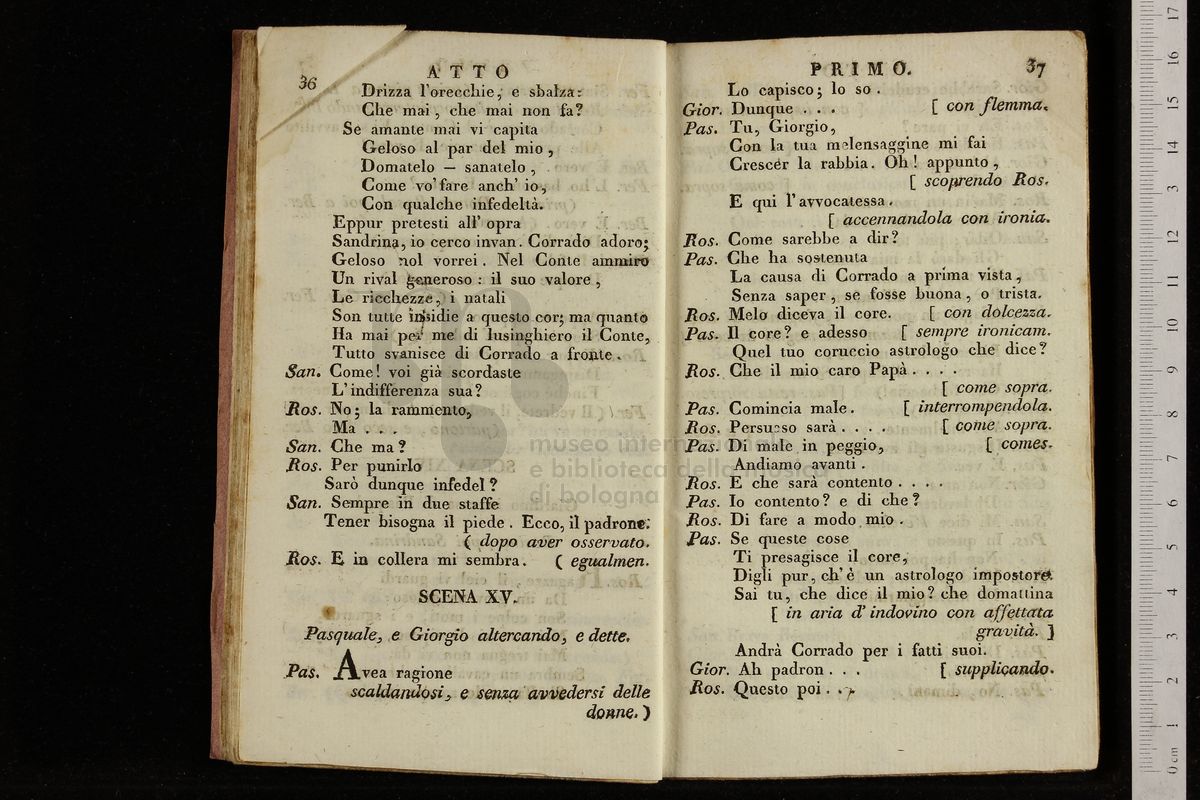 36 ATTO
Drizza l'orecchie, e sbalza:
Che mai, che mai non fa?
Se amante mai vi capita
Geloso al par del mio,
Domatelo — sanatelo,
Come vo' fare anch' io,
Con qualche infedeltà.
Eppur pretesti all' opra
Sandrina, io cerco invan. Corrado adoro;
Geloso nol vorrei. Nel Conte ammiro
Un rival generoso: il suo valore,
Le ricchezze, i natali
Son tutte insidie a questo cor; ma quanto
Ha mai per me di lusinghiero il Conte,
Tutto svanisce di Corrado a fronte.
San. Come! voi già scordaste
L'indifferenza sua?
Ros. No; la rammento,
Ma . . .
San. Che ma?
Ros. Per punirlo
Sarò dunque infedel?
San. Sempre in due staffe
Tener bisogna il piede. Ecco, il padrone.
( dopo aver osservato.
Ros. E in collera mi sembra. ( egualmen.
SCENA XV.
Pasquale, e Giorgio altercando, e dette.
Pas. Avea ragione
scaldandosi, e senza avvedersi delle
donne. )
PRIMO. 37
Lo capisco; lo so.
Gior. Dunque . . . [ con flemma.
Pas. Tu, Giorgio,
Con la tua melensaggine mi fai
Crescer la rabbia. Oh! appunto,
[ scoprendo Ros.
E qui l'avvocatessa.
[ accennandola con ironia.
Ros. Come sarebbe a dir?
Pas. Che ha sostenuta
La causa di Corrado a prima vista,
Senza saper, se fosse buona, o trista.
Ros. Melo diceva il core. [ con dolcezza.
Pas. Il core? e adesso [ sempre ironicam.
Quel tuo coruccio astrologo che dice?
Ros. Che il mio caro Papà . . . .
[ come sopra.
Pas. Comincia male. [ interrompendola.
Ros. Persuaso sarà . . . . [ come sopra.
Pas. Di male in peggio, [ comes.
Andiamo avanti.
Ros. E che sarà contento . . . .
Pas. Io contento? e di che?
Ros. Di fare a modo mio.
Pas. Se queste cose
Ti presagisce il core,
Digli pur, ch'è un astrologo impostore.
Sai tu, che dice il mio? che domattina
[ in aria d'indovino con affettata
gravità. ]
Andrà Corrado per i fatti suoi.
Gior. Ah padron . . . [ supplicando.
Ros. Questo poi . . .
museo internazionale
e biblioteca della musica
di bologna
0 cm 1 2 3 4 5 6 7 8 9 10 11 12 13 14 15 16 17